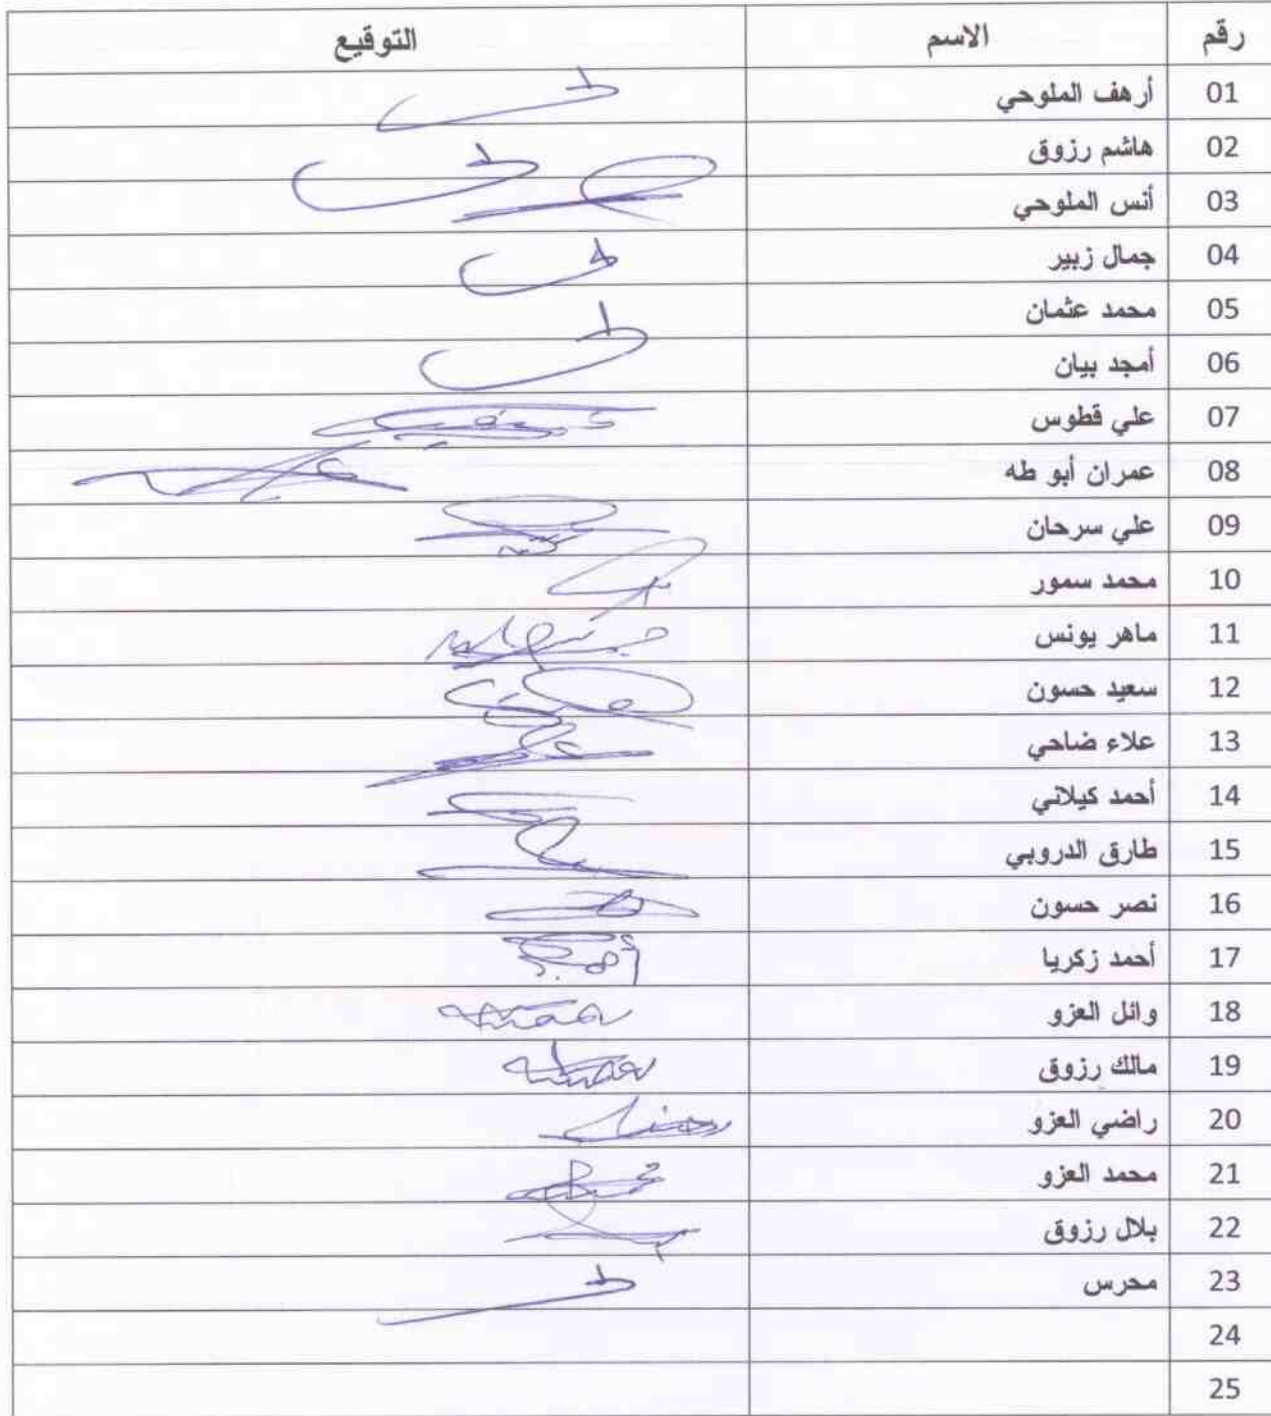 رقم الاسم التوقيع
01 أرهف الملوحي
02 هاشم رزوق
03 أنس الملوحي
04 جمال زبير
05 محمد عثمان
06 أمجد بيان
07 علي قطوس
08 عمران أبو طه
09 علي سرحان
10 محمد سمور
11 ماهر يونس
12 سعيد حسون
13 علاء ضاحي
14 أحمد كيلاني
15 طارق الدروبي
16 نصر حسون
17 أحمد زكريا
18 وائل العزو
19 مالك رزوق
20 راضي العزو
21 محمد العزو
22 بلال رزوق
23 محرس
24
25